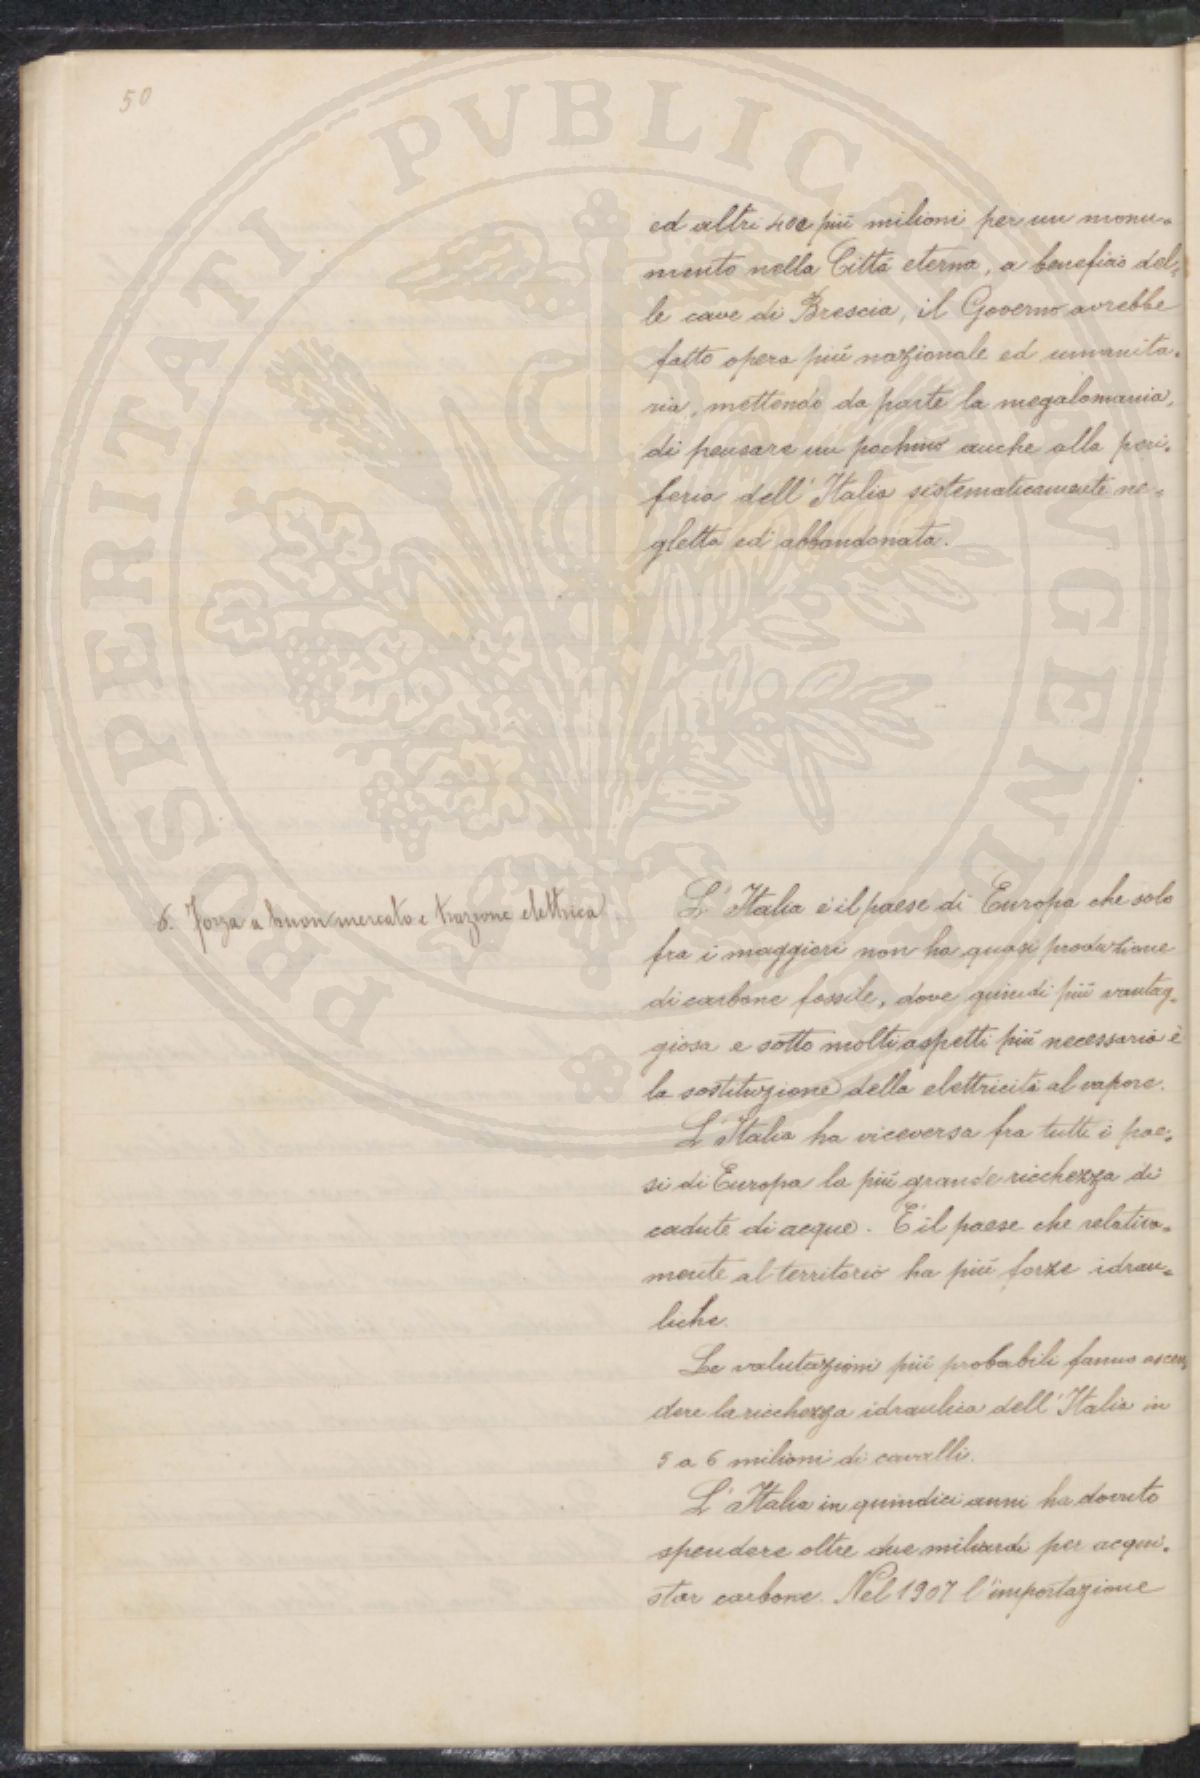 50
ed altri 400 più milioni per un monu=
mento nella Città eterna, a beneficio del=
le cave di Brescia, il Governo avrebbe
fatto opera più nazionale ed umanita=
ria, mettendo da parte la megalomania,
di pensare un pochino anche alla peri=
feria dell'Italia sistematicamente ne=
gletta ed abbandonata.
6. Forza a buon mercato e trazione elettrica
L'Italia è il paese di Europa che solo
fra i maggiori non ha quasi produzione
di carbone fossile, dove quindi più vantag=
giosa e sotto molti aspetti più necessaria è
la sostituzione della elettricità al vapore.
L'Italia ha viceversa fra tutti i pae=
si di Europa la più grande ricchezza di
cadute di acque. È il paese che relativa=
mente al territorio ha più forze idrau=
liche.
Le valutazioni più probabili fanno ascen=
dere la ricchezza idraulica dell'Italia in
5 a 6 milioni di cavalli.
L'Italia in quindici anni ha dovuto
spendere oltre due miliardi per acqui=
star carbone. Nel 1907 l'importazione
PROSPERITATI PVBLICAE AVGENDAE